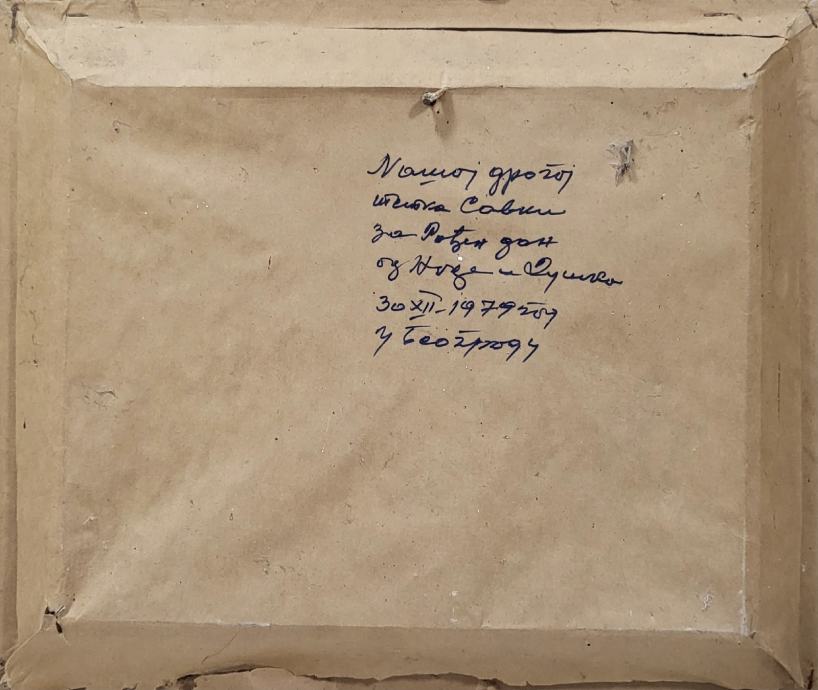 Nашој драгој
тетка Савки
за Рођен дан
од Наде и Душка
30 XII-1979 год
у Београду